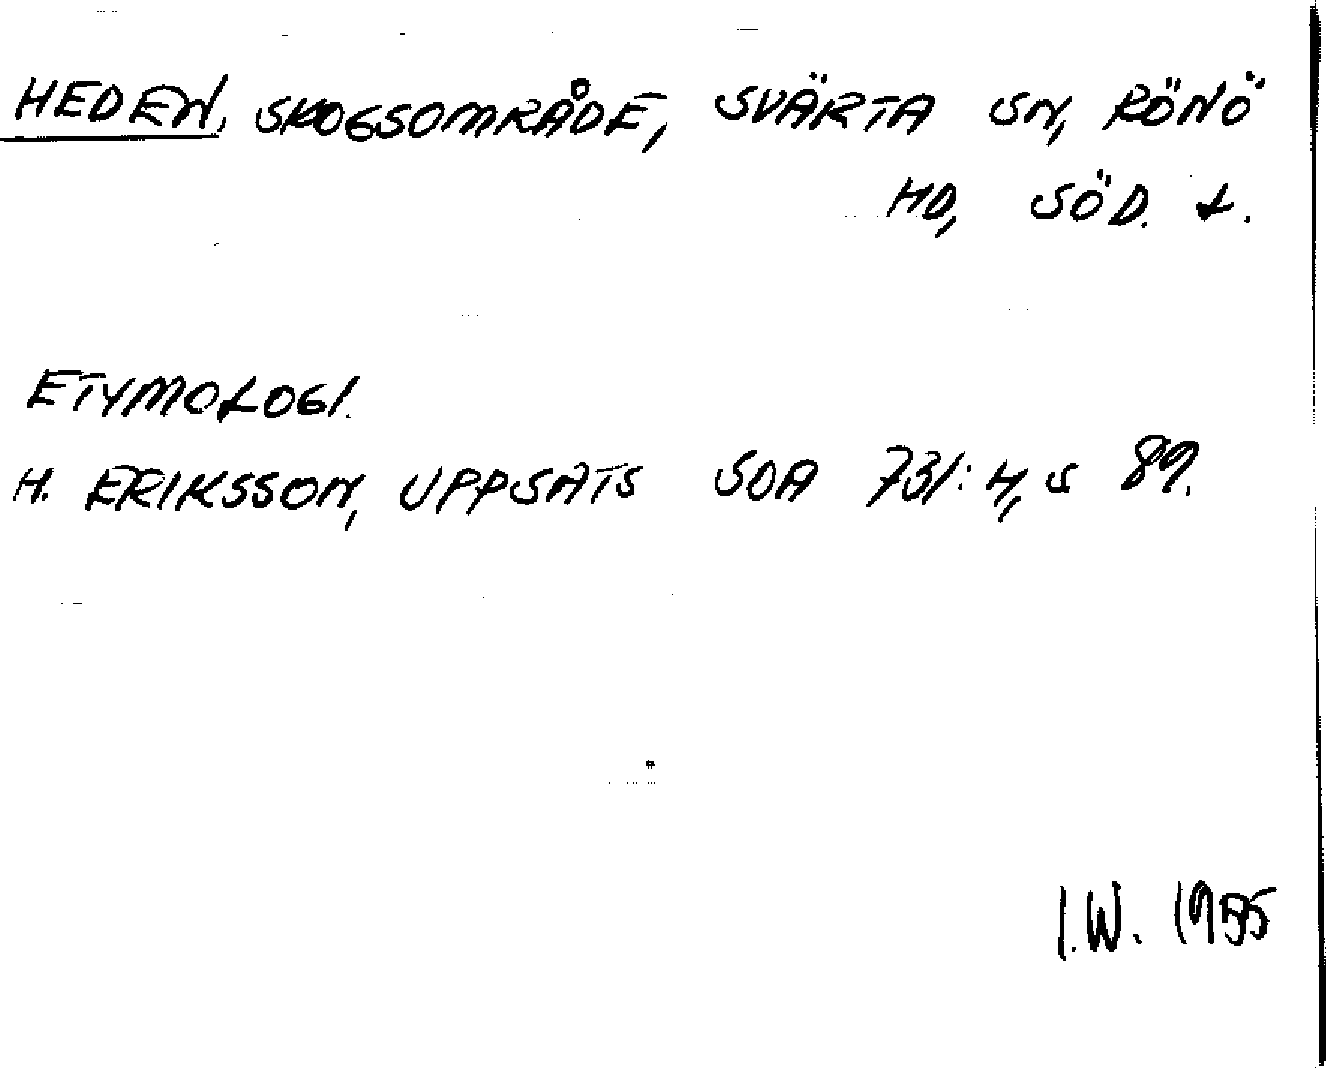 HEDEN, SKOGSOMRÅDE, SVÄRTA SN, RÖNÖ
HD, SÖD. L.
ETYMOLOGI.
H. ERIKSSON, UPPSATS SOA 731:4, S 89.
I.W.